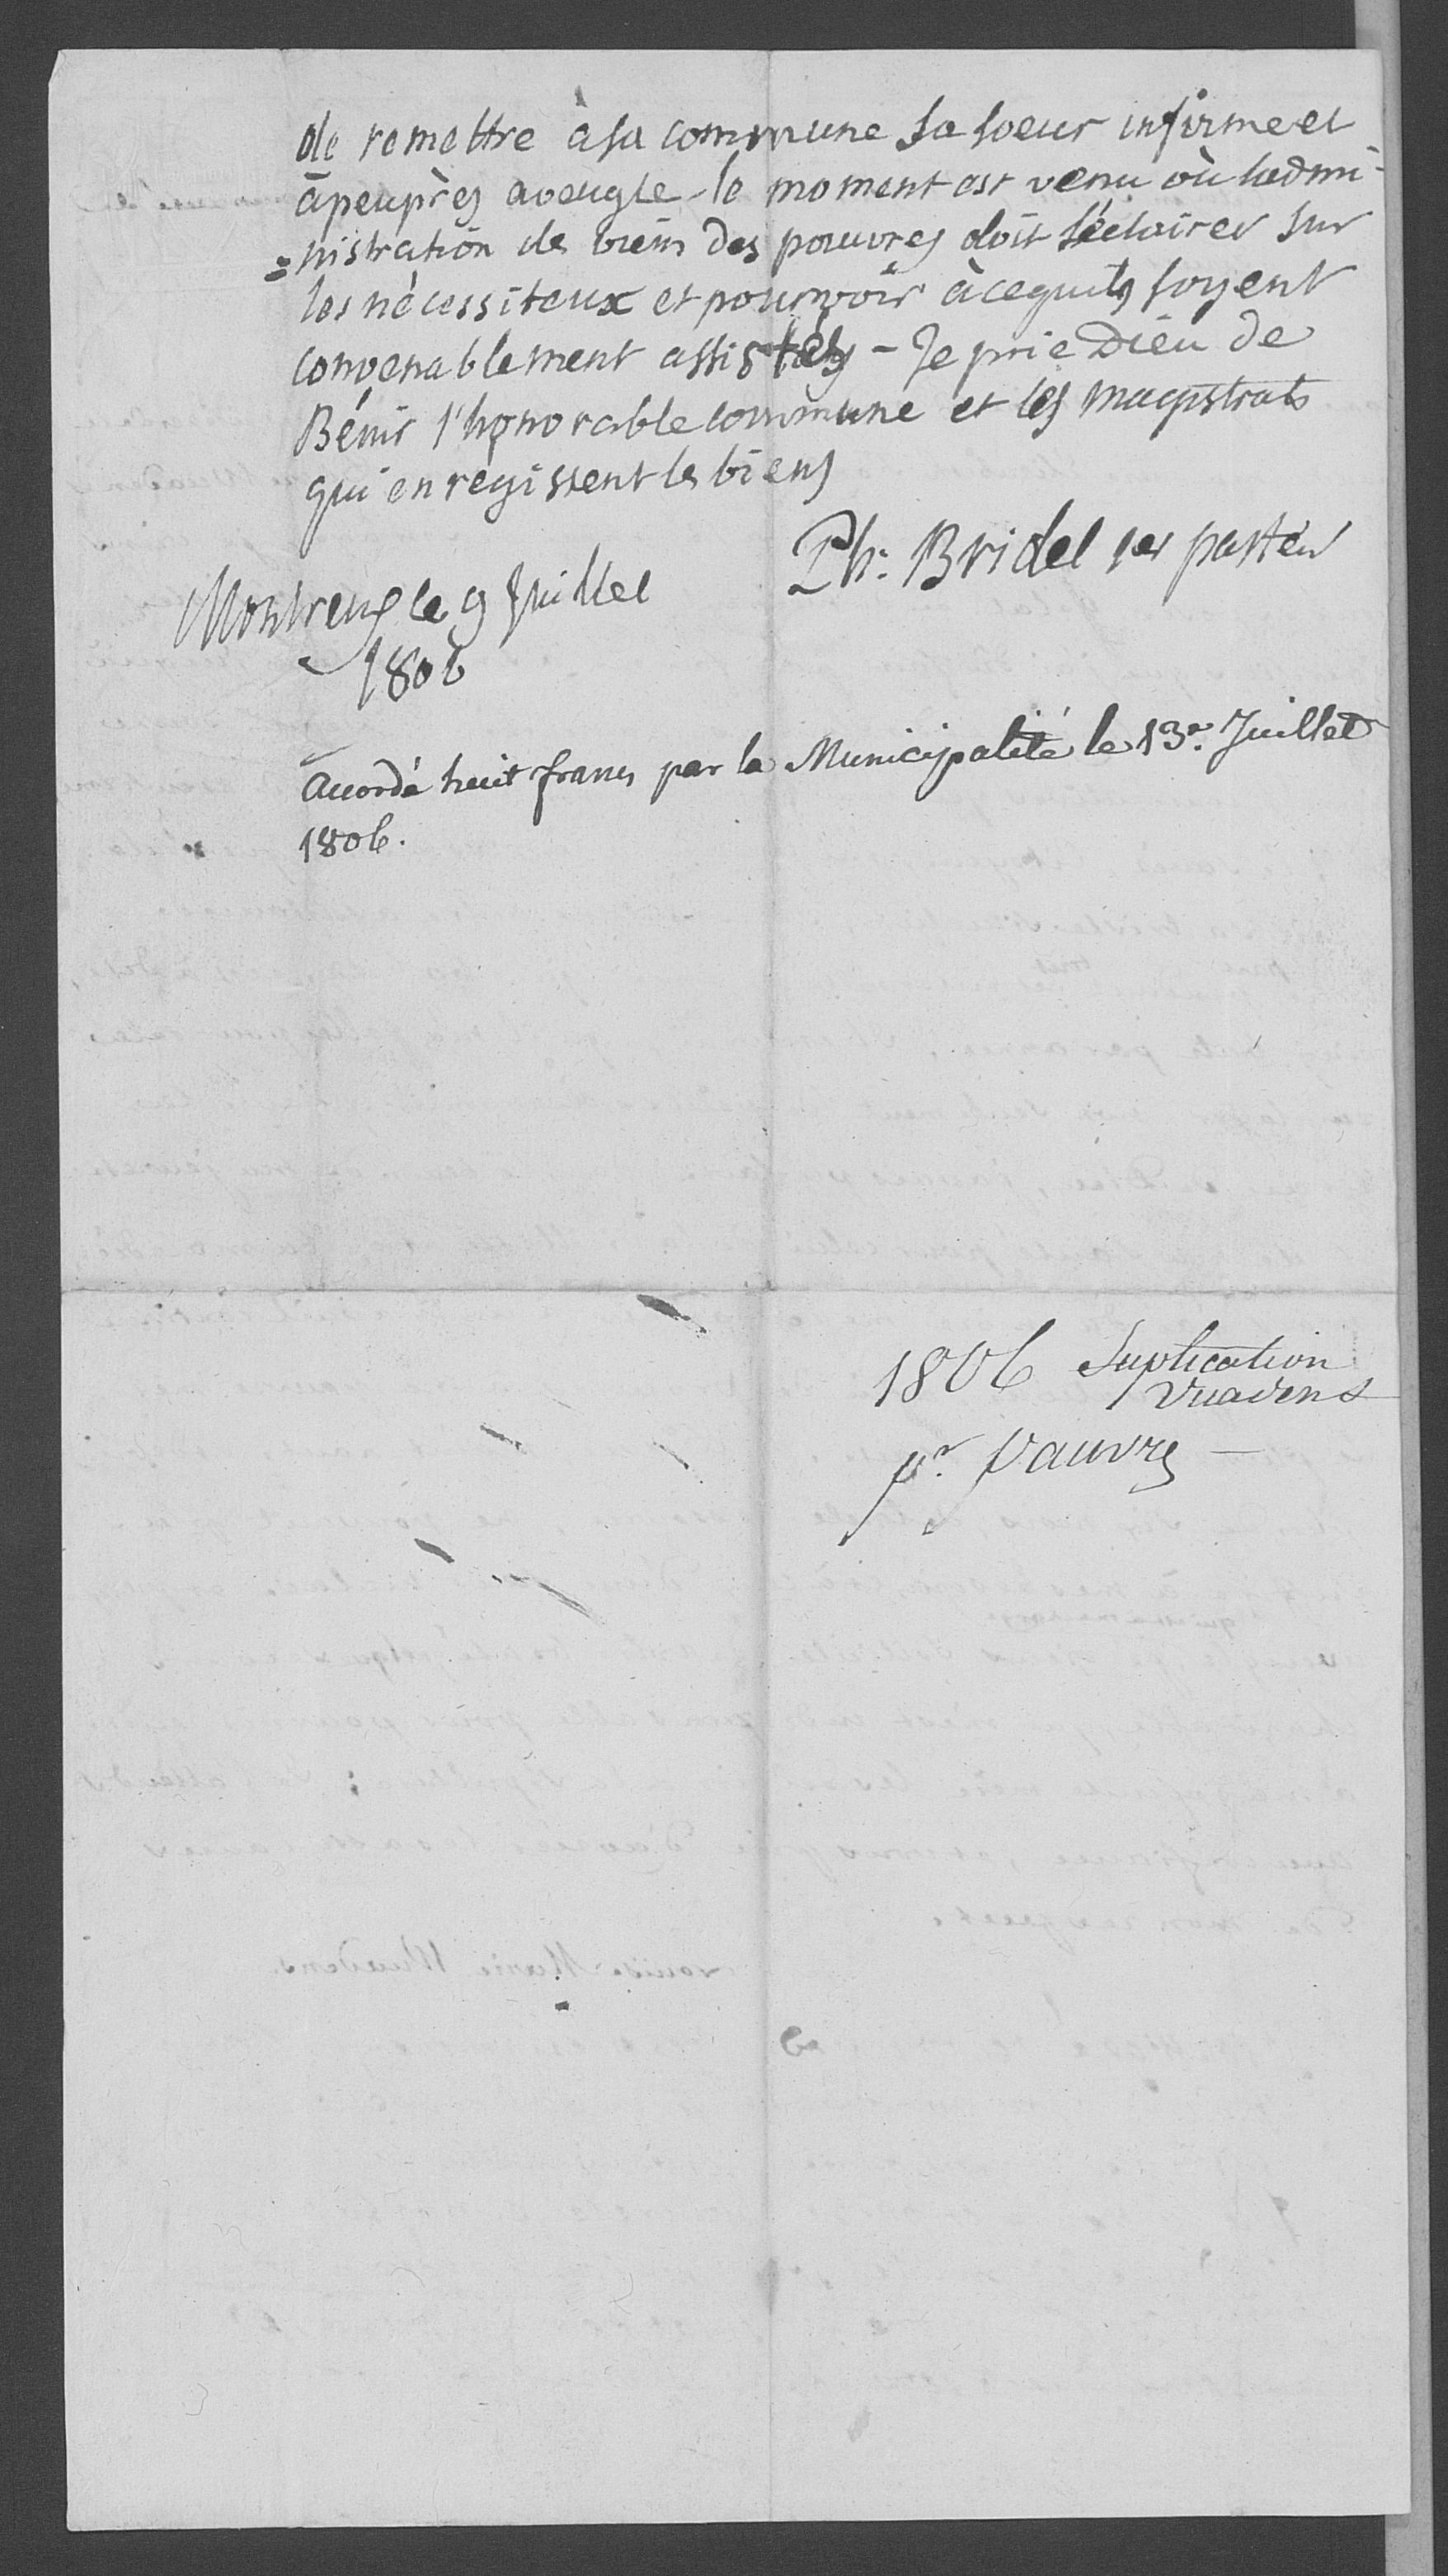 de remettre à sa commune sa soeur infirme et
àpeuprès aveugle - le moment est venu où ladmi-
=nistration des biens des pauvres doit s'éclairer sur
les nécessiteux et pourvoir àcequils soyent
convenablement assistés - Je prie Dieu de
Bénir l'honorable commune et les magistrats
qui en régissent les biens
Ph: Bridel 1er pasteur
Montreux le 9 Juillet
1806
Acordé huit francs par la Municipalité le 13e. Juillet
1806.
1806 Suplication
Vuadens
pr. Pauvres -